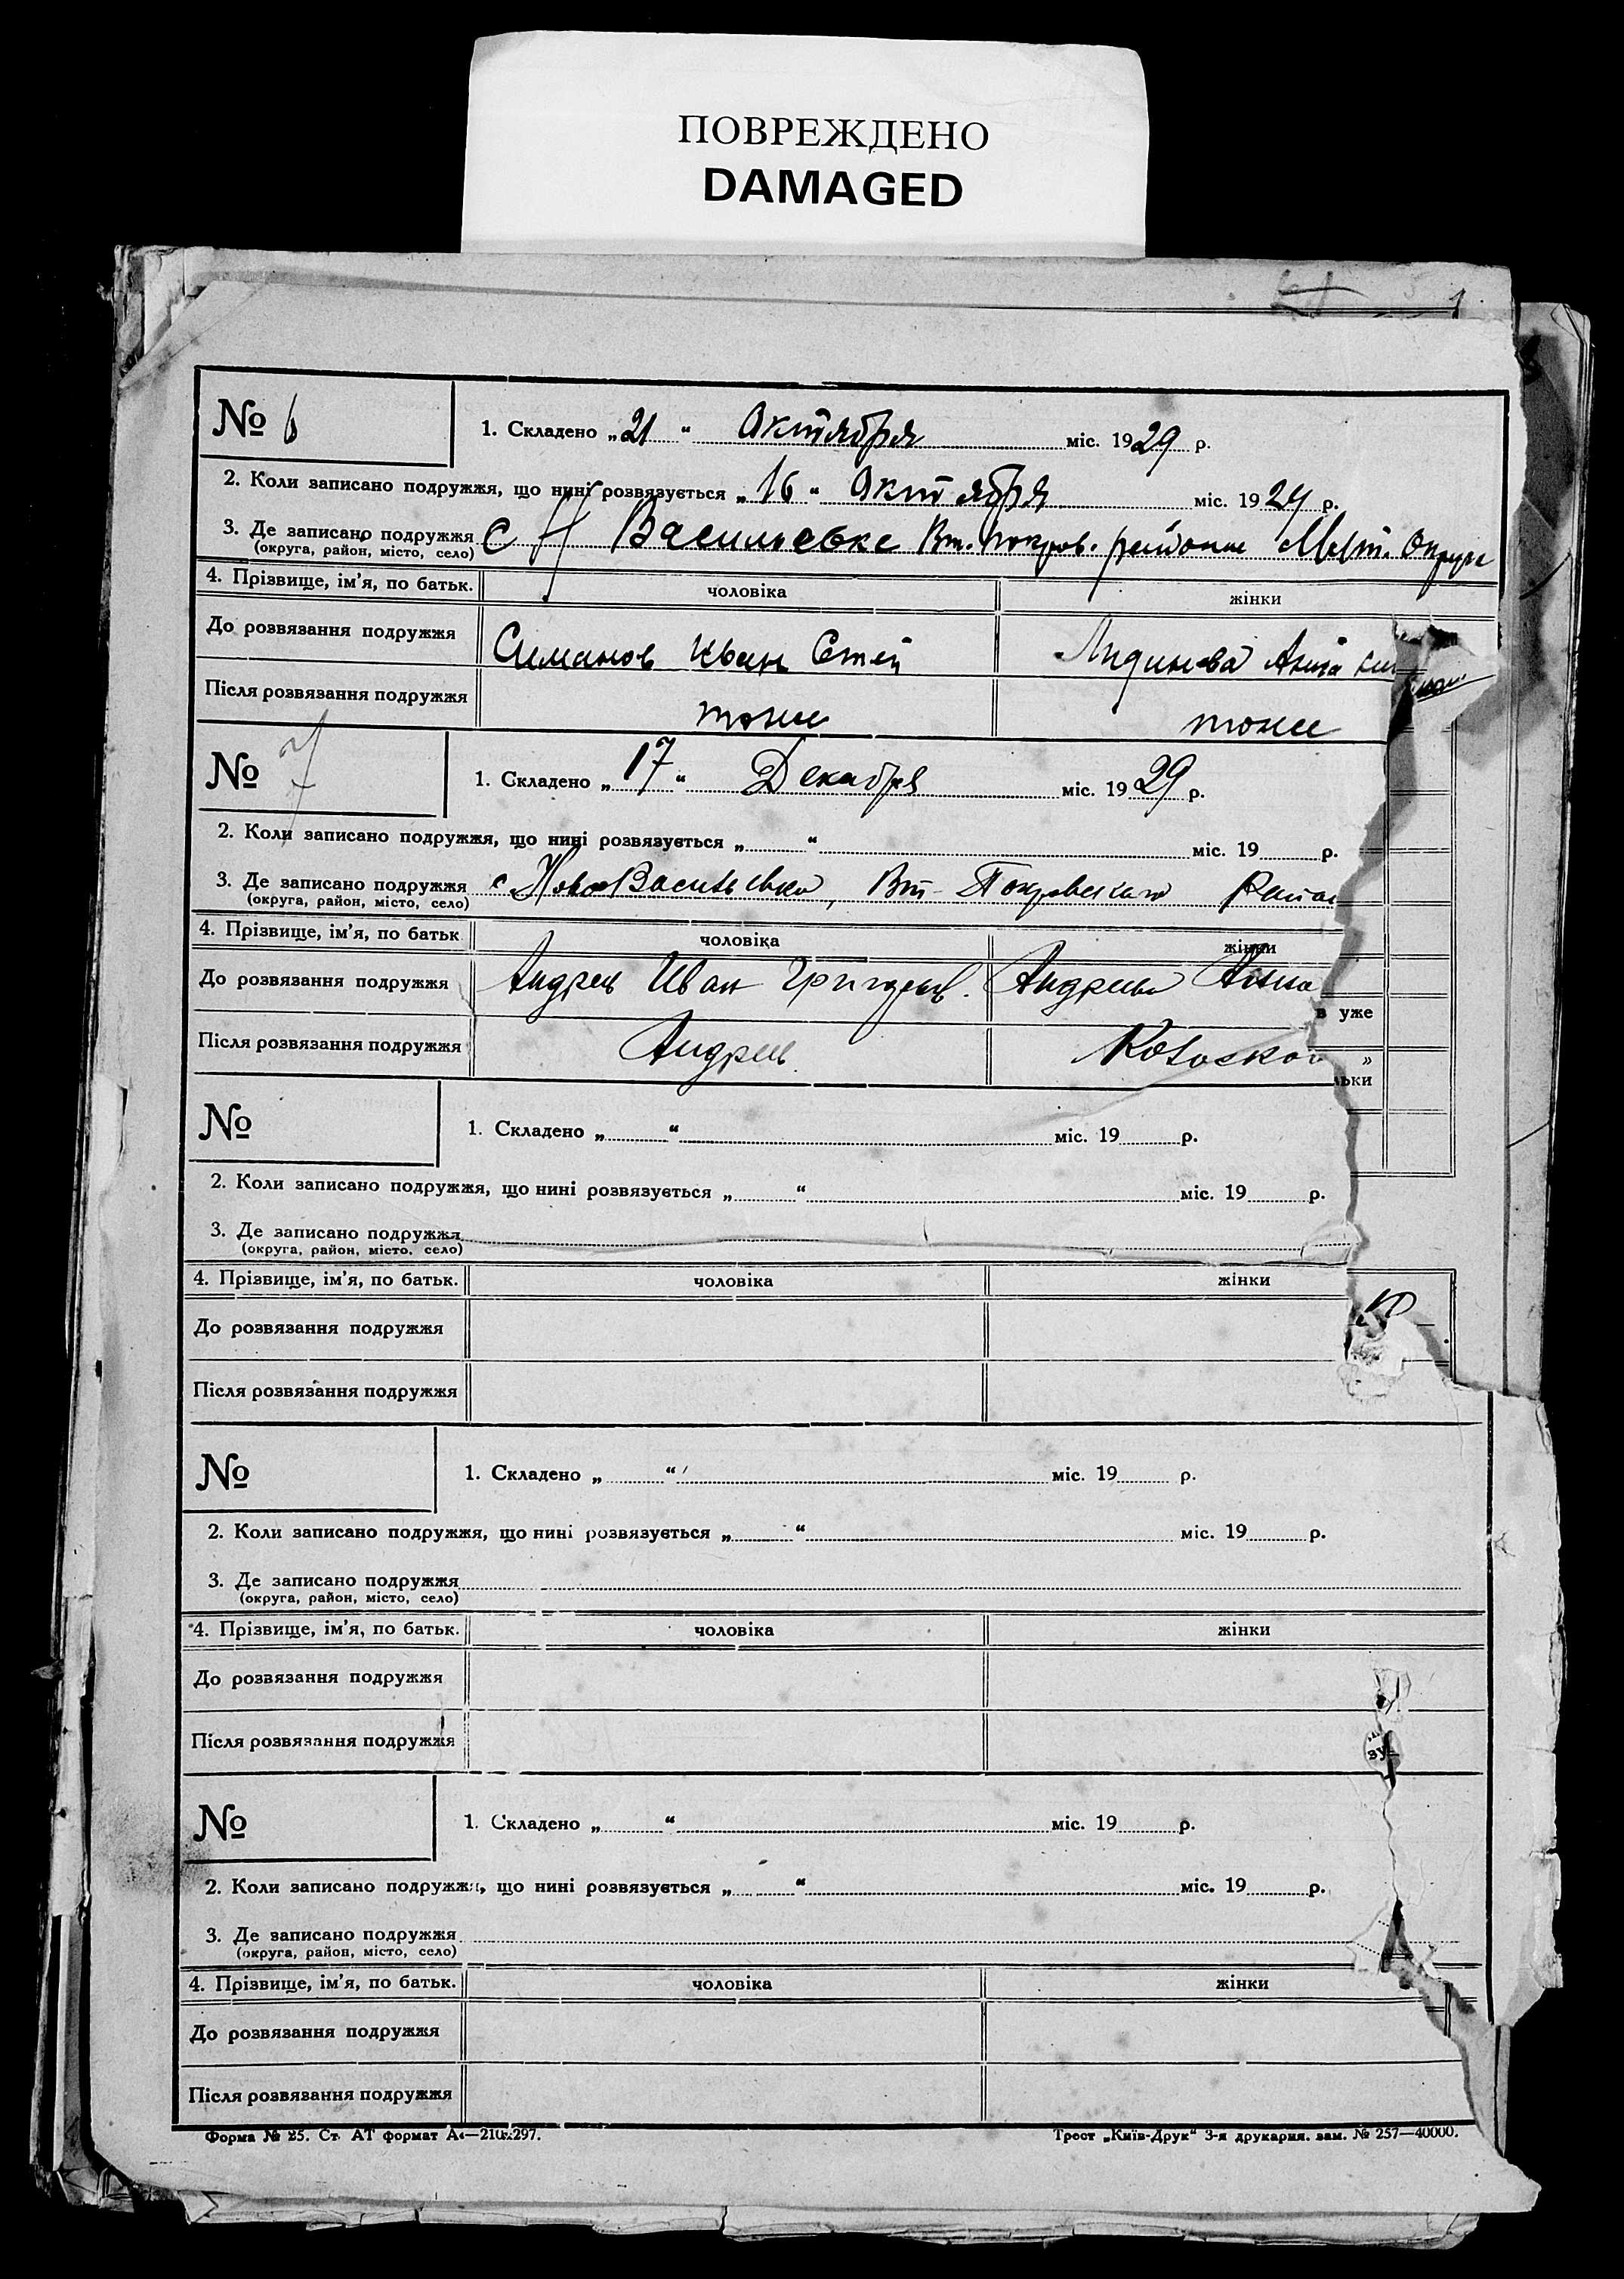 ПОВРЕЖДЕНО
DAMAGED
№ 6
1. Складено „21" Октября міс. 1929 р.
2. Коли записано подружжя, що нині розвязується „16" Октября міс. 192 р.
3. Де записано подружжя с Н Васильевке Вт. покров. районе Округе
(округа, район, місто, село)
4. Прізвище, ім'я, по батьк. чоловіка жінки
До розвязання подружжя Симонов Иван Анна
Після розвязання подружжя тоже тоже
№ 7
1. Складено „17" Декабря міс. 1929 р.
2. Коли записано подружжя, що нині розвязується „ " міс. 19 р.
3. Де записано подружжя с НовоВасильевка, Вт-Покровскаго Район
(округа, район, місто, село)
4. Прізвище, ім'я, по батьк чоловіка жінки
До розвязання подружжя Андрец Иван Григорьев. Анна
в уже
Після розвязання подружжя Андрец »
льки
№
1. Складено „ " міс. 19 р.
2. Коли записано подружжя, що нині розвязується „ " міс. 19 р.
3. Де записано подружжя
(округа, район, місто. село)
4. Прізвище, ім'я, по батьк. чоловіка жінки
До розвязання подружжя
Після розвязання подружжя
№
1. Складено „ " міс. 19 р.
2. Коли записано подружжя, що нині розвязується „ " міс. 19 р.
3. Де записано подружжя
(округа, район, місто, село)
4. Прізвище, ім'я, по батьк. чоловіка жінки
До розвязання подружжя
Після розвязання подружжя
зу
№
1. Складено „ " міс. 19 р.
2. Коли записано подружжя, що нині розвязується „ " міс. 19 р.
3. Де записано подружжя
(округа, район, місто, село)
4. Прізвище, ім'я, по батьк. чоловіка жінки
До розвязання подружжя
Після розвязання подружжя
Форма № 25. Ст. АТ формат А4—210х297. Трест „Київ-Друк" 3-я друкарня. зам. № 257—40000.